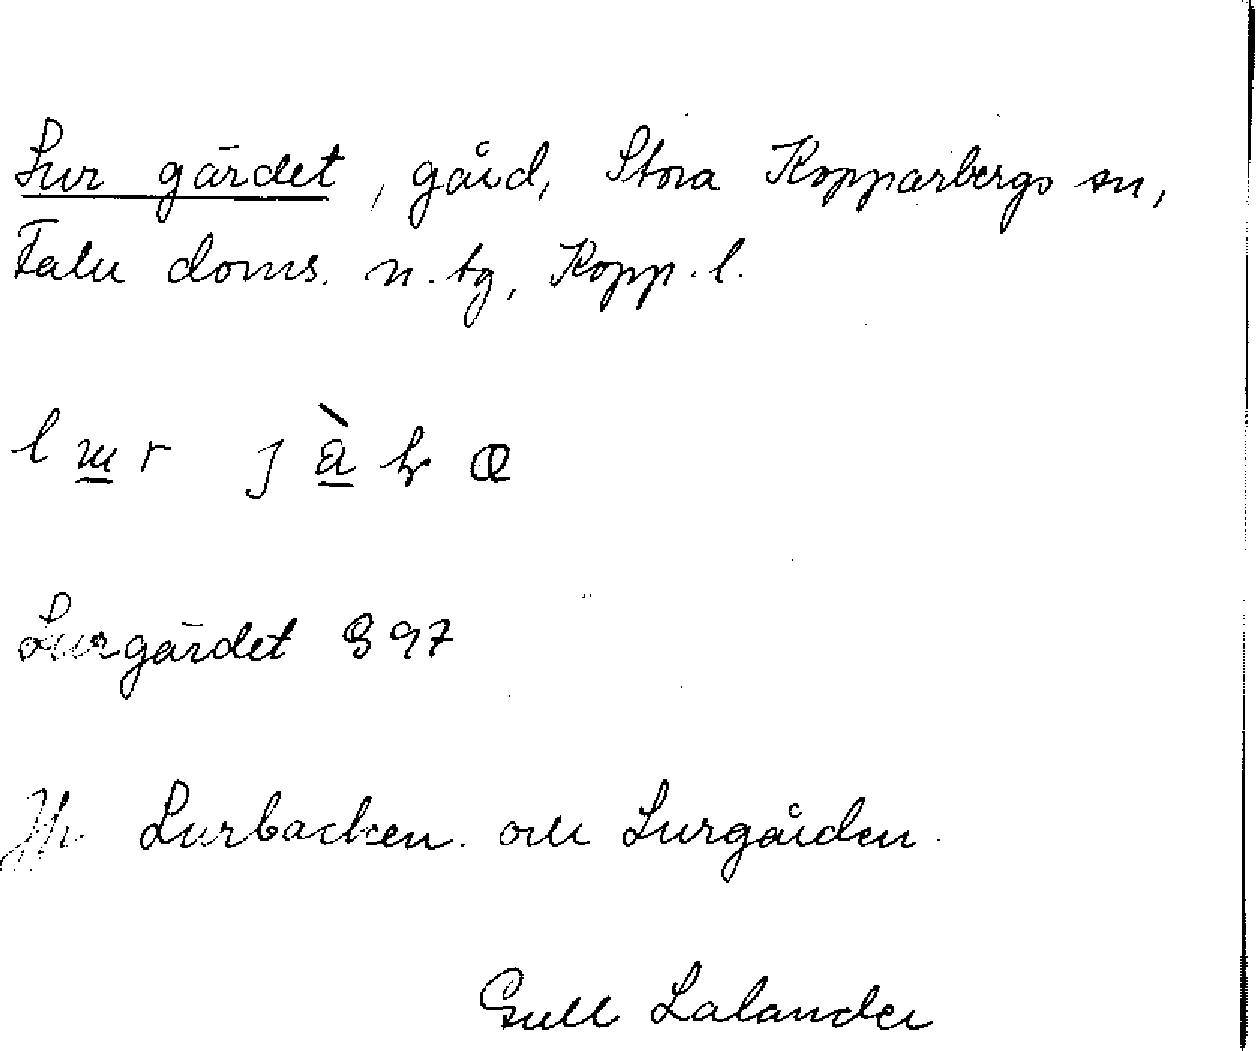 Lur gärdet, gård, Stora Kopparbergs sn,
Falu doms. n. tg, Kopp. l.
Lurgärdet G 97
Jfr Lurbacken. och Lurgården.
Gull Lalander